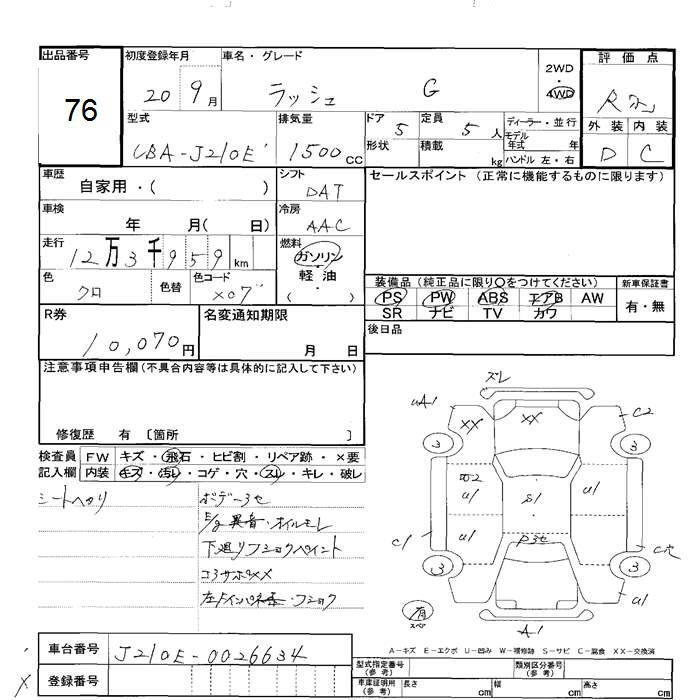 出品番号 初度登録年月 車名・グレード 2WD・4WD 評価点
76 20 9月 ラッシュ G R
型式 排気量 ドア 5 定員 5人 ディーラー・並行 外装 内装
CBA-J210E 1500cc 形状 積載 kg モデル年式 年 D C
ハンドル 左・右
車歴 自家用・( ) シフト DAT セールスポイント (正常に機能するものに限ります)
車検 年 月( 日) 冷房 AAC
走行 12万3千959km 燃料 ガソリン・軽油・( )
色 クロ 色替 色コード X07
装備品 (純正品に限り○をつけてください) 新車保証書
PS PW ABS エアB AW 有・無
SR ナビ TV カワ
R券 10,070円 名変通知期限 月 日 後日品
注意事項申告欄 (不具合内容等は具体的に記入して下さい)
修復歴 有 〔箇所 〕
検査員記入欄 FW キズ・飛石・ヒビ割・リペア跡・×要
内装 キズ・汚レ・コゲ・穴・スレ・キレ・破レ
シートヘタリ
ボデー3セ
E/g異音・オイルモレ
下廻りフショクペイント
コアサポXX
ズレ
uA1 XX XX C2
3 3
U2 U1 S1 U1
C1 U1 P3セ C穴
3 3
有 スペア U1
A1
A-キズ E-エクボ U-凹み W-補修跡 S-サビ C-腐食 XX-交換済
車台番号 J210E-0026634
登録番号
型式指定番号(参考) 類別区分番号(参考)
車庫証明用(参考) 長さ cm 幅 cm 高さ cm